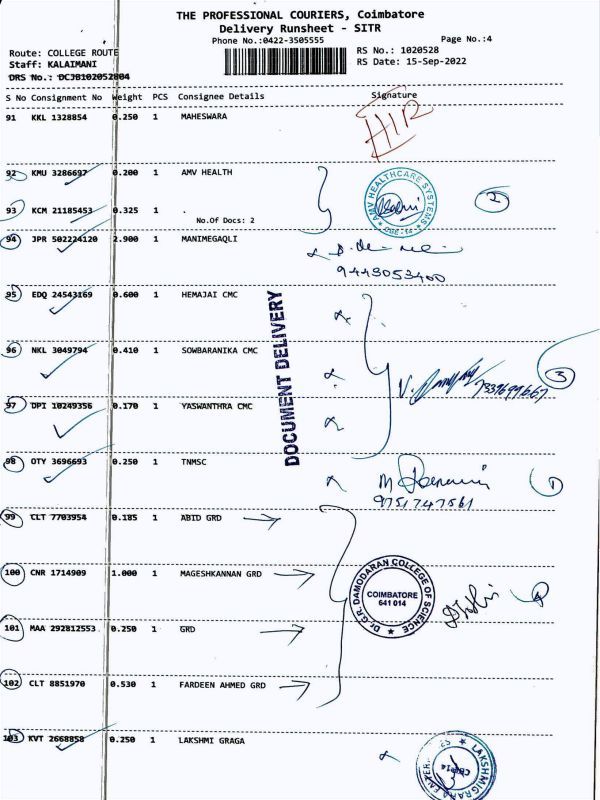 THE PROFESSIONAL COURIERS, Coimbatore
Delivery Runsheet - SITR
Phone No.:0422-3505555
Page No.:4
Route: COLLEGE ROUTE
RS No.: 1020528
Staff: KALAIMANI
RS Date: 15-Sep-2022
DRS No.: DCJB102052804
S No Consignment No Weight PCS Consignee Details Signature
91 KKL 1328854 0.250 1 MAHESWARA
92 KMU 3286697 0.200 1 AMV HEALTH
AMV HEALTHCARE SYSTEMS
CBE-14
2
93 KCM 21185453 0.325 1
No.Of Docs: 2
94 JPR 502224120 2.900 1 MANIMEGAQLI
9443053400
95 EDQ 24543169 0.600 1 HEMAJAI CMC
DOCUMENT DELIVERY
96 NKL 3049794 0.410 1 SOWBARANIKA CMC
3
V.
7339699667
97 DPI 10249356 0.170 1 YASWANTHRA CMC
98 OTY 3696693 0.250 1 TNMSC
M
9751747561
1
99 CLT 7703954 0.185 1 ABID GRD
100 CNR 1714909 1.000 1 MAGESHKANNAN GRD
Dr.G.R. DAMODARAN COLLEGE OF SCIENCE
COIMBATORE
641 014
101 MAA 292812553 0.250 1 GRD
102 CLT 8851970 0.530 1 FARDEEN AHMED GRD
103 KVT 2668858 0.250 1 LAKSHMI GRAGA